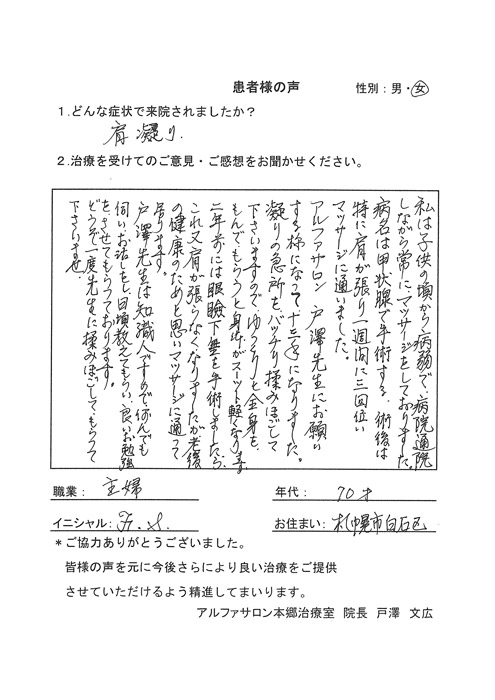 患者様の声
性別：男・女
１.どんな症状で来院されましたか？
肩凝り.
２.治療を受けてのご意見・ご感想をお聞かせください。
私は子供の頃から病弱で、病院通院
しながら常にマッサージをしておりました。
病名は甲状腺で手術する、術後は
特に肩が張り一週間に三回位い
マッサージに通いました。
アルファサロン 戸澤先生にお願い
する様になって十二年になりました。
凝りの急所を、バッチリ揉みほごして
下さいますのでゆっくりと全身を、
もんでもらうと身体がスーット軽くなります
二年前には眼瞼下垂を手術しましたら、
これ又肩が張らなくなりましたが老後
の健康のためと思いマッサージに通って
居ります。
戸澤先生は知識人ですので何んでも
伺いお話しをし、日頃教えてもらい、良いお勉強
をさせてもらっております。
どうぞ一度先生に揉みほごしてもらって
下さいませ。
職業： 主婦
年代： 70才
イニシャル： F.S.
お住まい： 札幌市白石区
＊ご協力ありがとうございました。
皆様の声を元に今後さらにより良い治療をご提供
させていただけるよう精進してまいります。
アルファサロン本郷治療室 院長 戸澤 文広